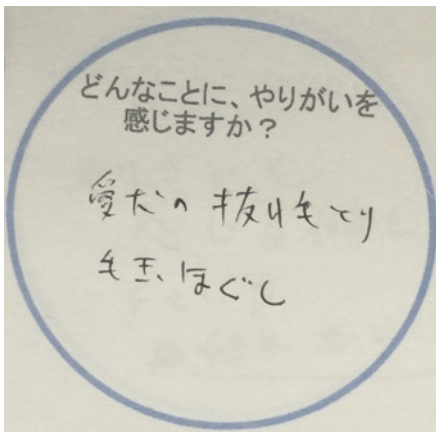 どんなことに、やりがいを
感じますか？
愛犬の抜け毛とり
毛玉ほぐし